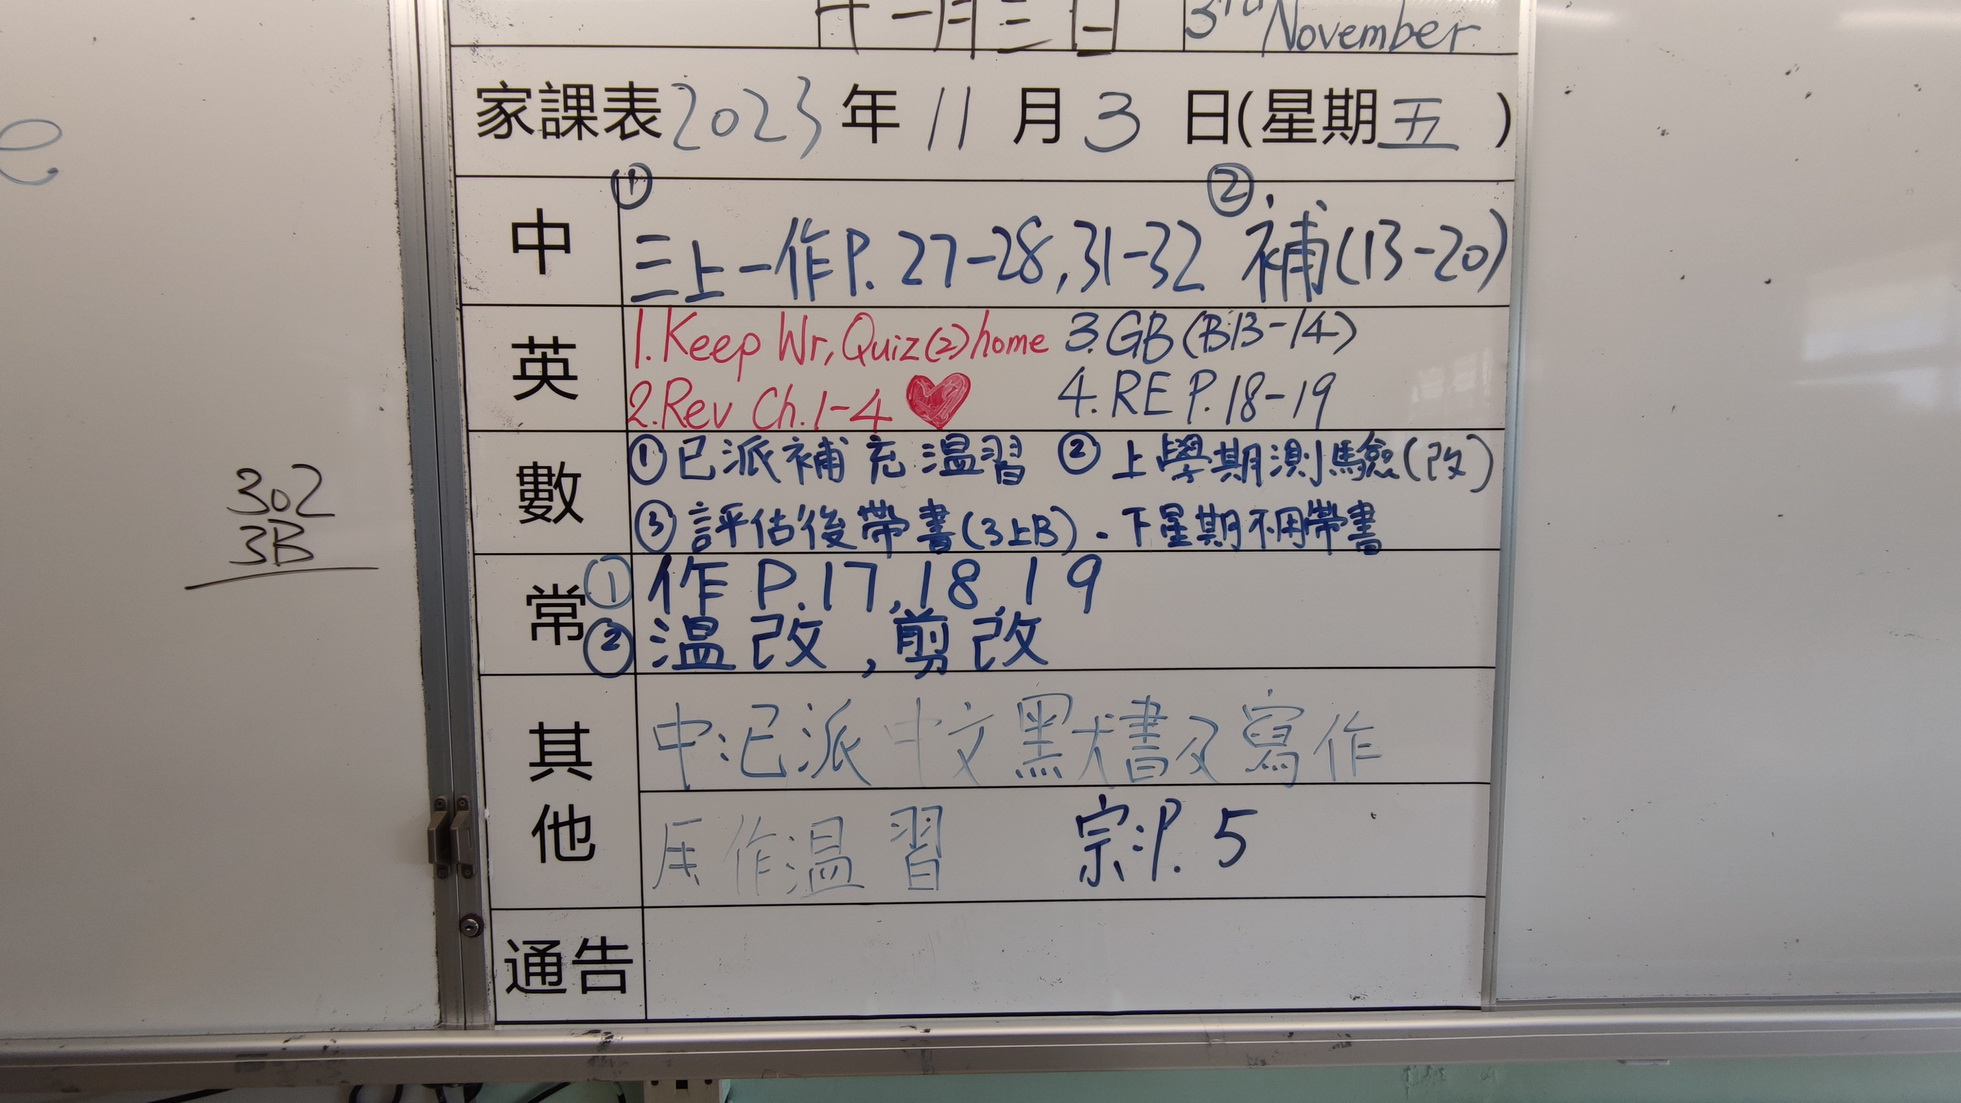 十一月三日 3rd November
家課表 2023 年 11 月 3 日(星期五)
中 ① 三上一作P.27-28,31-32 ② 補(13-20)
英 1.Keep Wr, Quiz(2) home 3.GB(B13-14)
2.Rev Ch.1-4 4.RE P.18-19
數 ①已派補充溫習 ②上學期測驗(改)
③評估後帶書(3上B)．下星期不用帶書
常 ①作P.17,18,19
②溫改,剪改
其他 中:已派中文默書及寫作
作溫習 宗:P.5
通告
302
3B
e